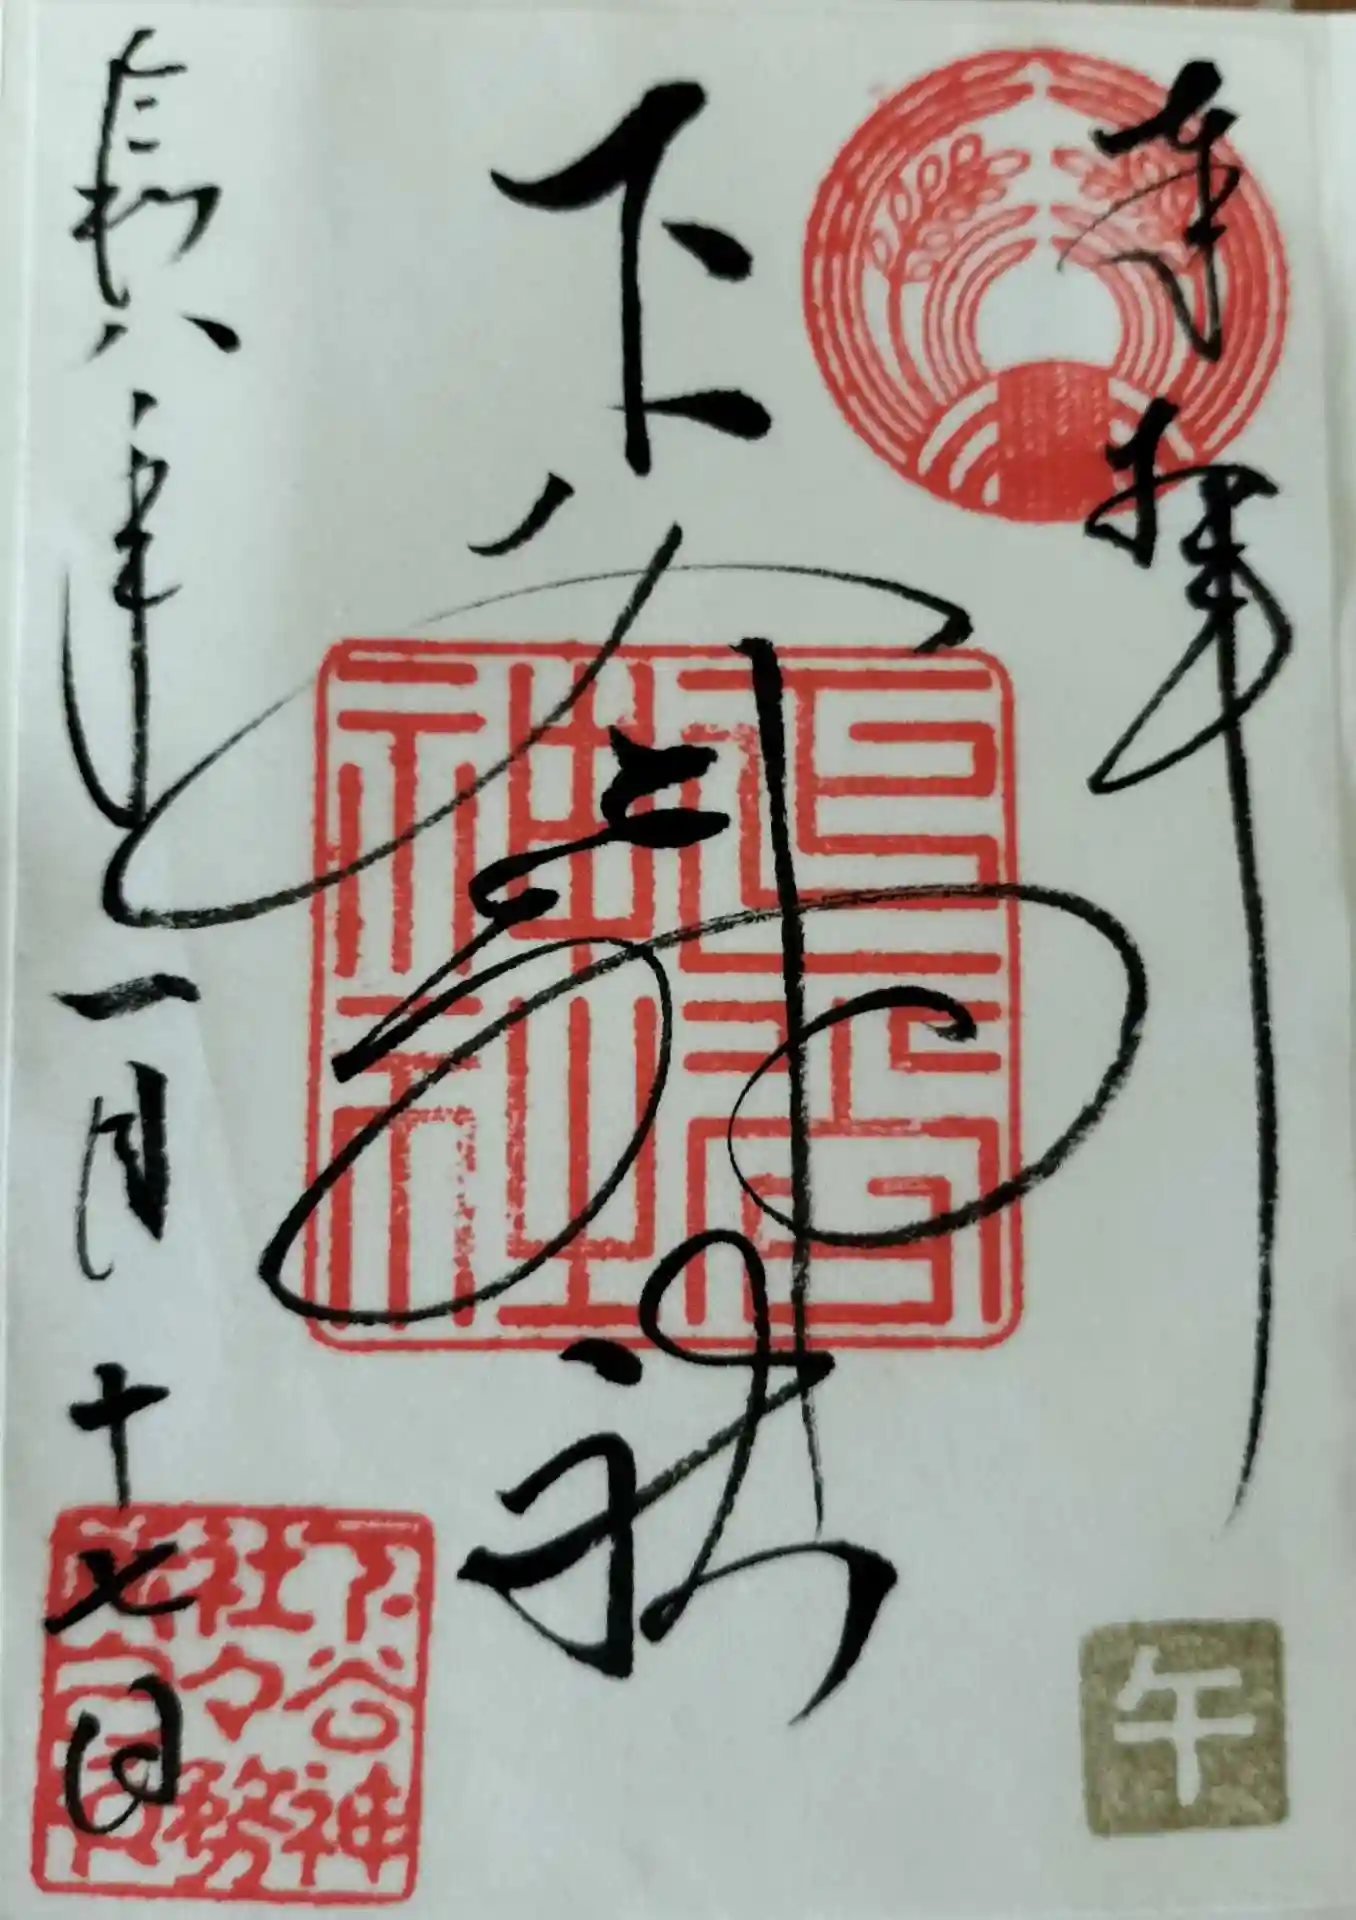 奉拝
下谷神社
下谷神社
令和八年一月十七日
下谷神
社々務
午